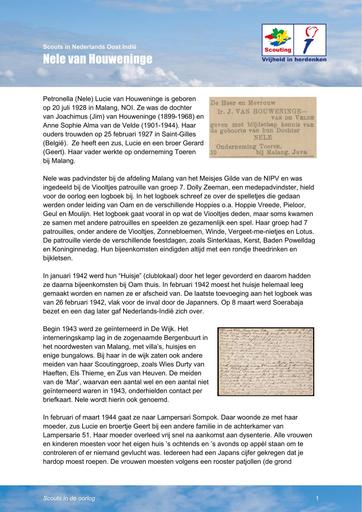 Scouts in Nederlands Oost Indië
Nele van Houweninge
Scouting
Vrijheid in herdenken
Petronella (Nele) Lucie van Houweninge is geboren
op 20 juli 1928 in Malang, NOI. Ze was de dochter
van Joachimus (Jim) van Houweninge (1899-1968) en
Anne Sophie Alma van de Velde (1901-1944). Haar
ouders trouwden op 25 februari 1927 in Sint-Gilles
(België). Ze heeft een zus, Lucie en een broer Gerard
(Geert). Haar vader werkte op onderneming Toeren
bij Malang.
De Heer en Mevrouw
Ir. J. VAN HOUWENINGE—
VAN DE VELDE
geven met blijdschap kennis van
de geboorte van hun Dochter
NELE
Onderneming Toeren,
10 bij Malang, Java
Nele was padvindster bij de afdeling Malang van het Meisjes Gilde van de NIPV en was
ingedeeld bij de Viooltjes patrouille van groep 7. Dolly Zeeman, een medepadvindster, hield
voor de oorlog een logboek bij. In het logboek schreef ze over de spelletjes die gedaan
werden onder leiding van Oam en de verschillende Hoppies o.a. Hoppie Vreede, Pieloor,
Geul en Moulijn. Het logboek gaat vooral in op wat de Viooltjes deden, maar soms kwamen
ze samen met andere patrouilles en speelden ze gezamenlijk een spel. Haar groep had 7
patrouilles, onder andere de Viooltjes, Zonnebloemen, Winde, Vergeet-me-nietjes en Lotus.
De patrouille vierde de verschillende feestdagen, zoals Sinterklaas, Kerst, Baden Powelldag
en Koninginnedag. Hun bijeenkomsten eindigden altijd met een rondje theedrinken en
bijkletsen.
In januari 1942 werd hun "Huisje" (clublokaal) door het leger gevorderd en daarom hadden
ze daarna bijeenkomsten bij Oam thuis. In februari 1942 moest het huisje helemaal leeg
gemaakt worden en namen ze er afscheid van. De laatste toevoeging aan het logboek was
van 26 februari 1942, vlak voor de inval door de Japanners. Op 8 maart werd Soerabaja
bezet en een dag later gaf Nederlands-Indië zich over.
Begin 1943 werd ze geïnterneerd in De Wijk. Het
interneringskamp lag in de zogenaamde Bergenbuurt in
het noordwesten van Malang, met villa's, huisjes en
enige bungalows. Bij haar in de wijk zaten ook andere
meisjes van haar Scoutinggroep, zoals Wies Durty van
Haeften, Els Thieme, en Zus van Heuven. De meiden
van de 'Mar', waarvan een aantal wel en een aantal niet
geïnterneerd waren in 1943, onderhielden contact per
briefkaart. Nele wordt hierin ook genoemd.
In februari of maart 1944 gaat ze naar Lampersari Sompok. Daar woonde ze met haar
moeder, zus Lucie en broertje Geert bij een andere familie in de achterkamer van
Lampersarie 51. Haar moeder overleed vrij snel na aankomst aan dysenterie. Alle vrouwen
en kinderen moesten voor het eigen huis 's ochtends en 's avonds op appèl staan om te
controleren of er niemand gevlucht was. Iedereen had een Japans cijfer gekregen dat je
hardop moest roepen. De vrouwen moesten volgens een rooster patjollen (de grond
Scouts in de oorlog
1